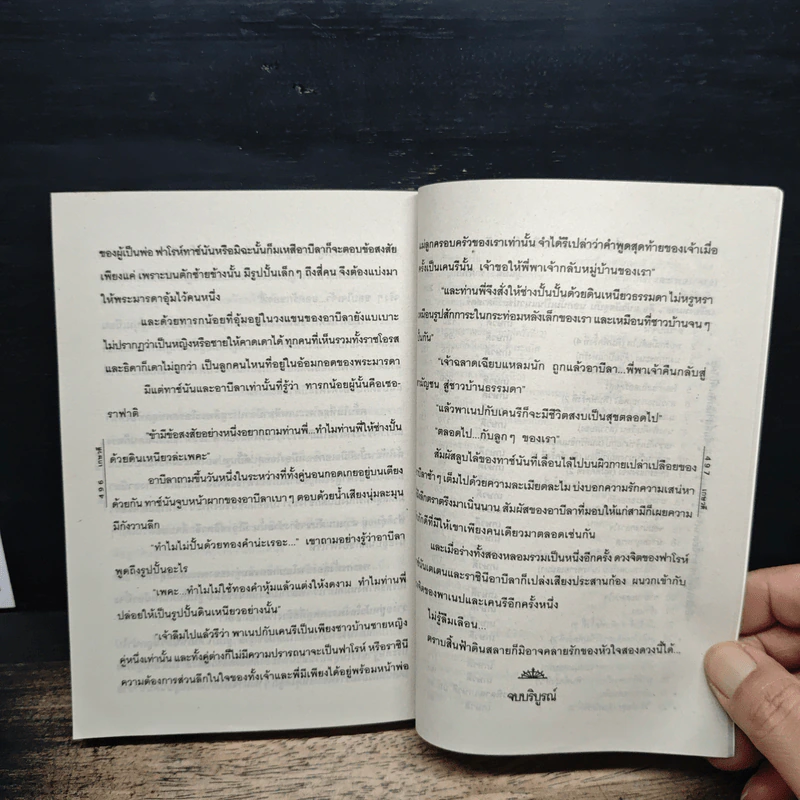 ของผู้เป็นพ่อ ฟาโรห์ทาซ์นันหรือมิฉะนั้นก็มเหสีอาบีลาก็จะตอบข้อสงสัย
เพียงแค่ เพราะบนตักซ้ายข้างนั้น มีรูปปั้นเล็กๆ ถึงสี่คน จึงต้องแบ่งมา
ให้พระมารดาอุ้มไว้คนหนึ่ง
และด้วยทารกน้อยที่อุ้มอยู่ในวงแขนของอาบีลายังแบเบาะ
ไม่ปรากฏว่าเป็นหญิงหรือชายให้คาดเดาได้ ทุกคนที่เห็นรวมทั้งราชโอรส
และธิดาก็เดาไม่ถูกว่า เป็นลูกคนไหนที่อยู่ในอ้อมกอดของพระมารดา
มีแต่ทาซ์นันและอาบีลาเท่านั้นที่รู้ว่า ทารกน้อยผู้นั้นคือเซอ-
ราฟาติ
"ข้ามีข้อสงสัยอย่างหนึ่งอยากถามท่านพี่...ทำไมท่านพี่ให้ช่างปั้น
ด้วยดินเหนียวล่ะเพคะ"
อาบีลาถามขึ้นวันหนึ่งในระหว่างที่ทั้งคู่นอนกอดเกยอยู่บนเตียง
ด้วยกัน ทาซ์นันจูบหน้าผากของอาบีลาเบาๆ ตอบด้วยน้ำเสียงนุ่มละมุน
มีกังวานลึก
"ทำไมไม่ปั้นด้วยทองคำน่ะเรอะ..." เขาถามอย่างรู้ว่าอาบีลา
พูดถึงรูปปั้นอะไร
"เพคะ...ทำไมไม่ใช้ทองคำหุ้มแล้วแต่งให้งดงาม ทำไมท่านพี่
ปล่อยให้เป็นรูปปั้นดินเหนียวอย่างนั้น"
"เจ้าลืมไปแล้วรึว่า พาเนปกับเคนรีเป็นเพียงชาวบ้านชายหญิง
คู่หนึ่งเท่านั้น และทั้งคู่ต่างก็ไม่มีความปรารถนาจะเป็นฟาโรห์ หรือราชินี
ความต้องการส่วนลึกในใจของทั้งเจ้าและพี่มีเพียงได้อยู่พร้อมหน้าพ่อ
496
เกษวดี
แม่ลูกครอบครัวของเราเท่านั้น จำได้รึเปล่าว่าคำพูดสุดท้ายของเจ้าเมื่อ
ครั้งเป็นเคนรีนั้น เจ้าขอให้พี่พาเจ้ากลับหมู่บ้านของเรา"
"และท่านพี่จึงสั่งให้ช่างปั้นปั้นด้วยดินเหนียวธรรมดา ไม่หรูหรา
เหมือนรูปสักการะในกระท่อมหลังเล็กของเรา และเหมือนที่ชาวบ้านจนๆ
ปั้นกัน"
"เจ้าฉลาดเฉียบแหลมนัก ถูกแล้วอาบีลา...พี่พาเจ้าคืนกลับสู่
สามัญชน สู่ชาวบ้านธรรมดา"
"แล้วพาเนปกับเคนรีก็จะมีชีวิตสงบเป็นสุขตลอดไป"
"ตลอดไป...กับลูกๆ ของเรา"
สัมผัสลูบไล้ของทาซ์นันที่เลื่อนไล้ไปบนผิวกายเปล่าเปลือยของ
อาบีลาช้าๆ เต็มไปด้วยความละเมียดละไม บ่งบอกความรักความเสน่หา
ลึกตราตรึงมาเนิ่นนาน สัมผัสของอาบีลาที่มอบให้แก่สามีก็เผยความ
ภักดีที่มีให้เขาเพียงคนเดียวมาตลอดเช่นกัน
และเมื่อร่างทั้งสองหลอมรวมเป็นหนึ่งอีกครั้ง ดวงจิตของฟาโรห์
และราชินีอาบีลาก็เปล่งเสียงประสานก้อง ผนวกเข้ากับ
ดวงจิตของพาเนปและเคนรีอีกครั้งหนึ่ง
ไม่รู้ลืมเลือน...
ตราบสิ้นฟ้าดินสลายก็มิอาจคลายรักของหัวใจสองดวงนี้ได้...
จบบริบูรณ์
497
เกษวดี